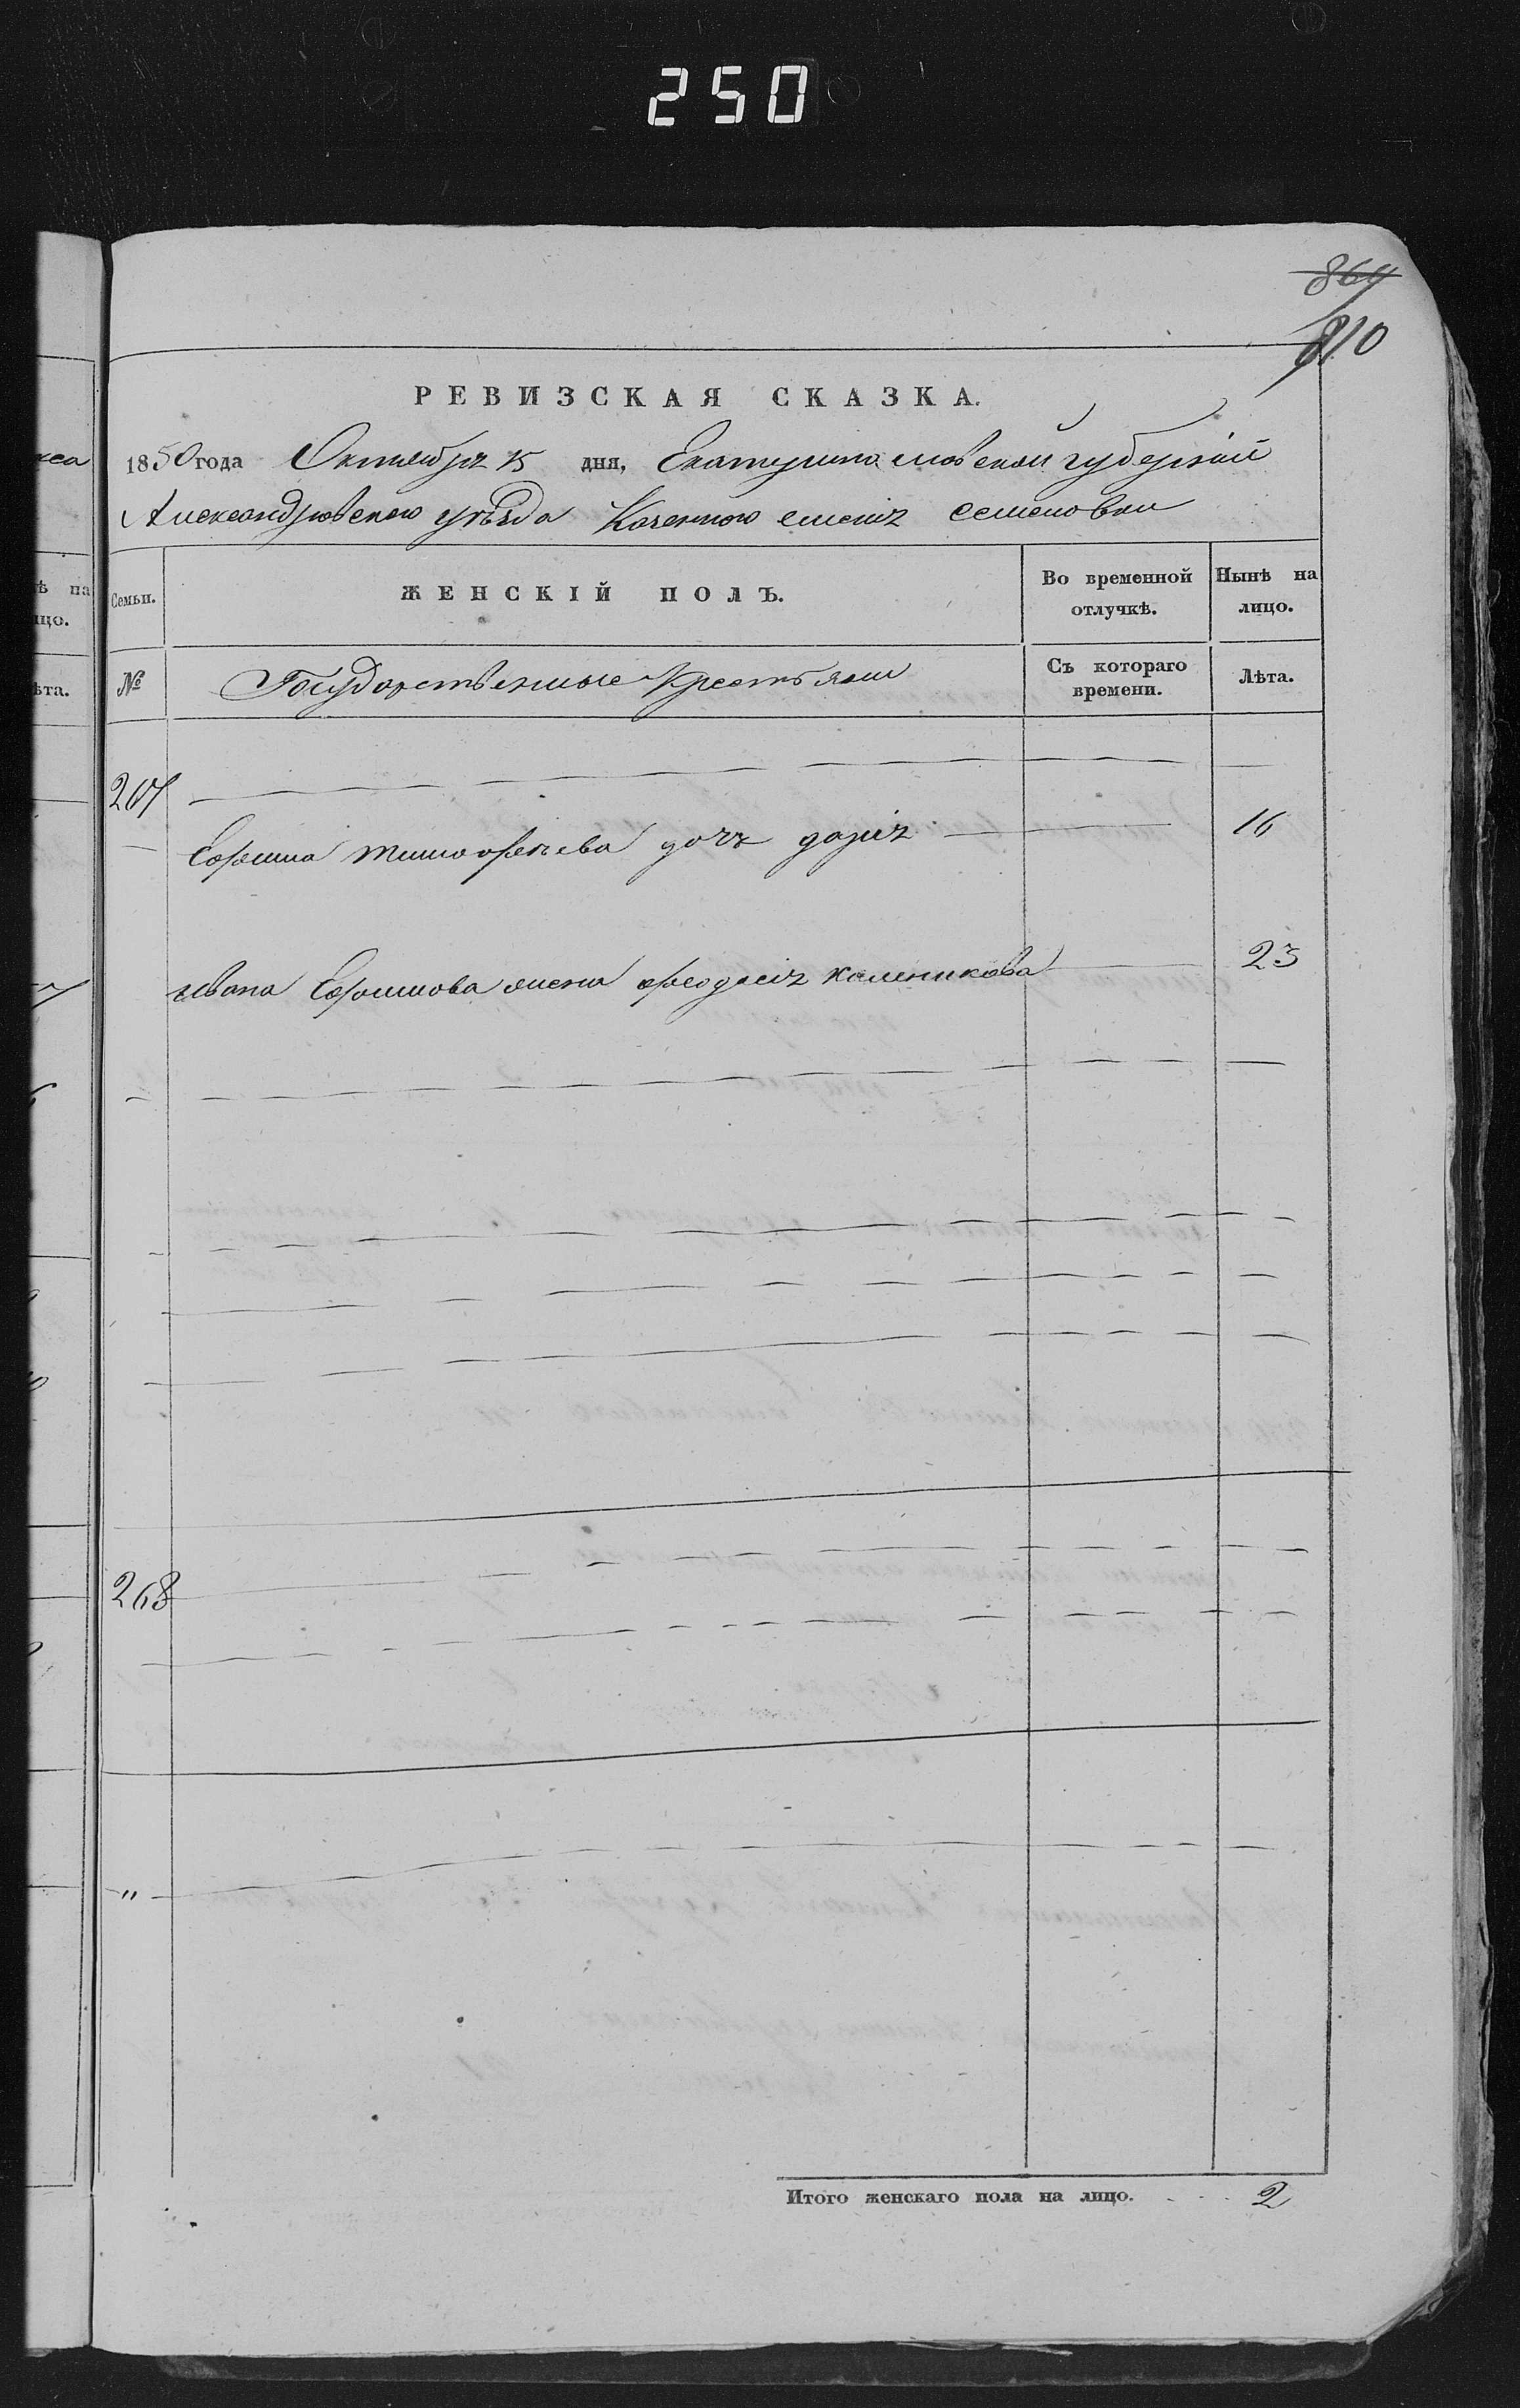 250
864
810
РЕВИЗСКАЯ СКАЗКА.
1850 года Октября 15 дня, Екатеринославской губернии
Александровского уезда Казенного селенія Семеновки
Семьи. ЖЕНСКІЙ ПОЛЪ. Во временной отлучкѣ. Нынѣ на лицо.
№ Государственные крестьяне Съ котораго времени. Лѣта.
267
Ефима Тимофеева дочь дарія 16
ивана Ефимова жена феодосія каленикова 23
268
"
Итого женскаго пола на лицо. 2